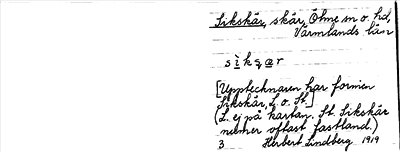 Sikskär, skär, Ölme sn o. hd,
Värmlands län
[Upptecknaren har formen
Sikskär, L. o. St.]
(L. ej på kartan. St. Sikskär
numer oftast fastland.)
3 Herbert Lindberg 1919